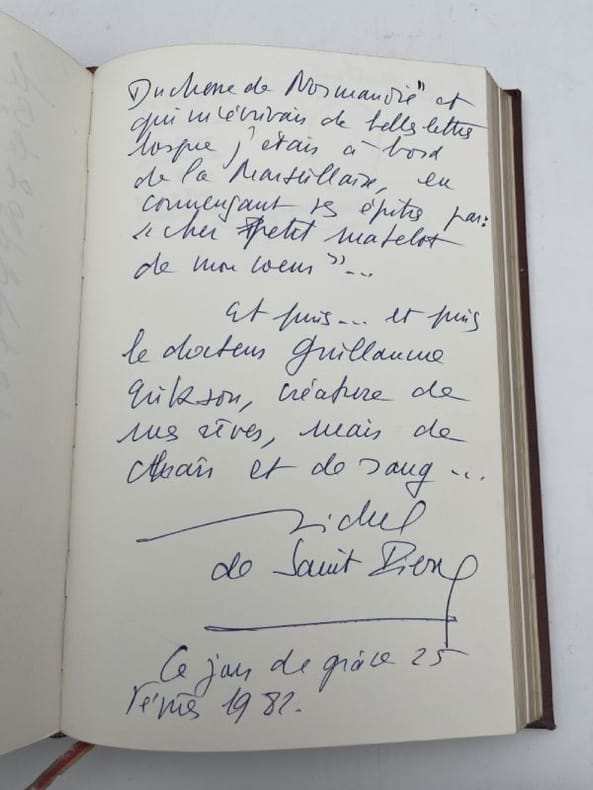 Duchesse de Normandie" et
qui m'écrivais de belles lettres
lorsque j'étais à bord
de la Marseillaise, en
commençant ses épîtres par:
« cher petit matelot
de mon coeur »...
Et puis... et puis
le docteur Guillaume
Erikson, créature de
mes rêves, mais de
chair et de sang...
Michel
de Saint Pierre
Ce jour de grâce 25
février 1982.